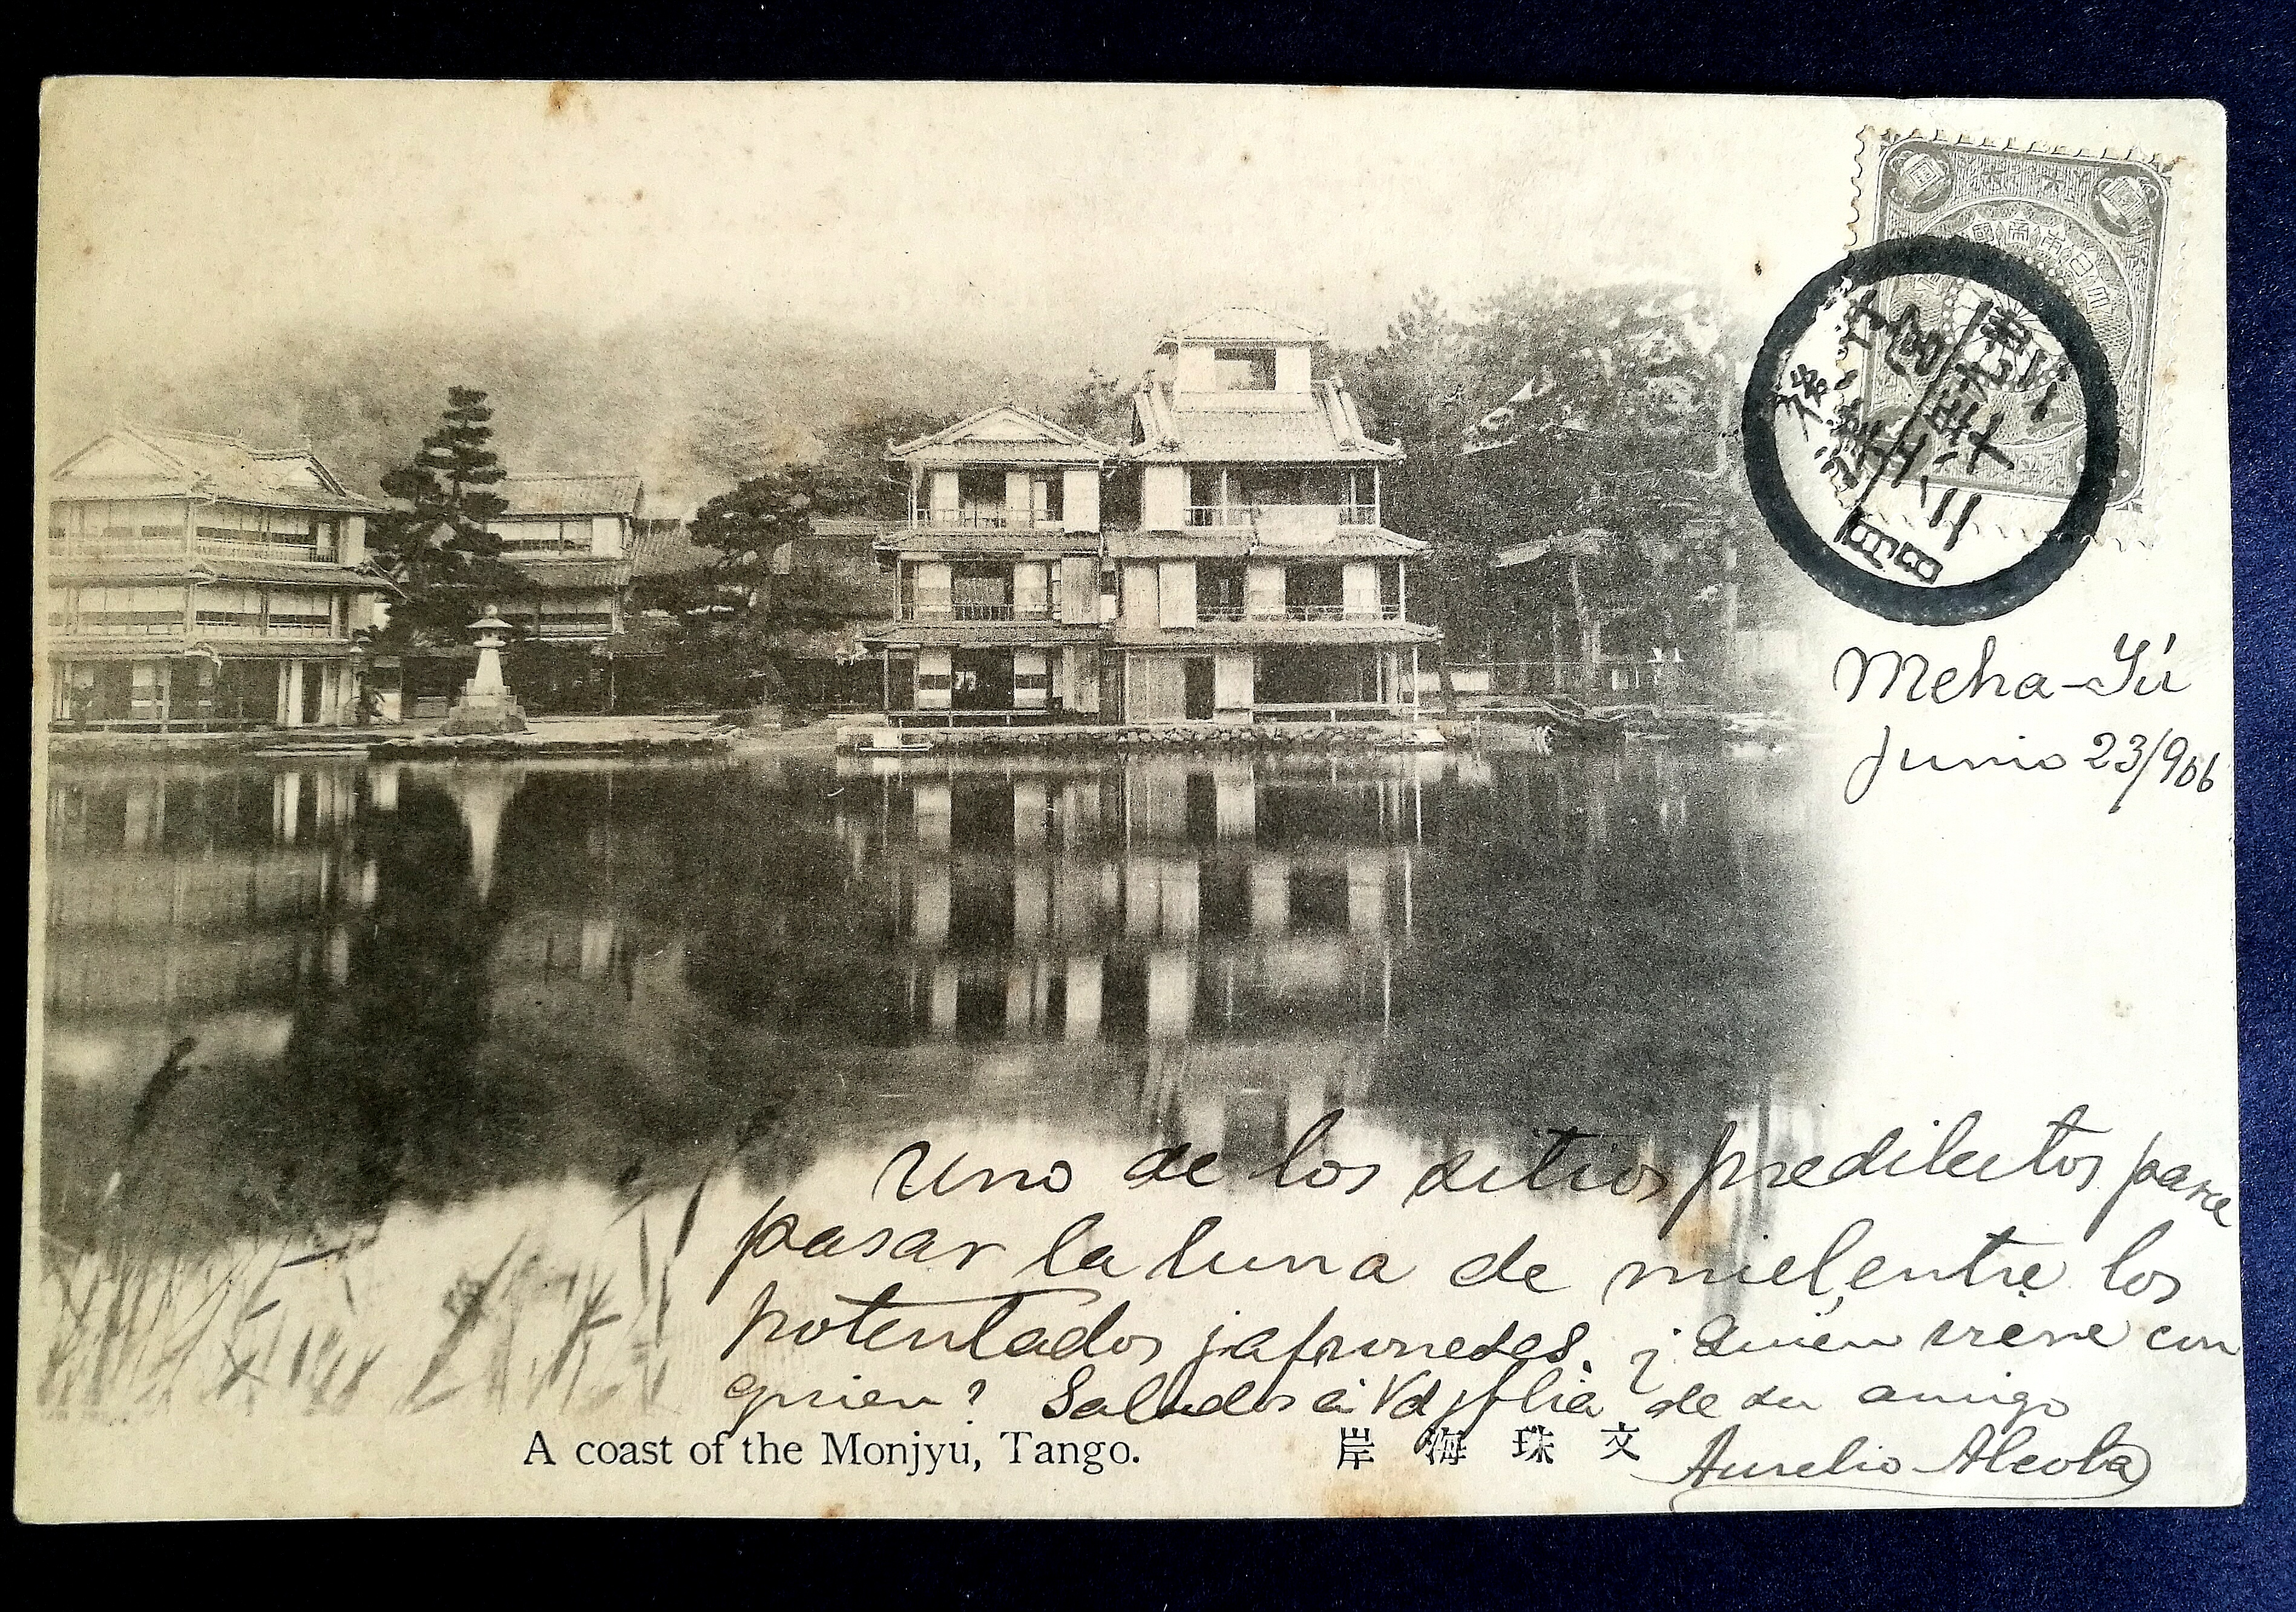 大日本帝國郵便
丹後 宮津
三十九年六月二十三日
Meha-Yú
Junio 23/906
Uno de los sitios predilectos para
pasar la luna de miel, entre los
potentados japoneses. ¿Quién viene con
quien? Saludos á Vd y flia de su amigo
Aurelio Alcoba
A coast of the Monjyu, Tango. 岸海珠文